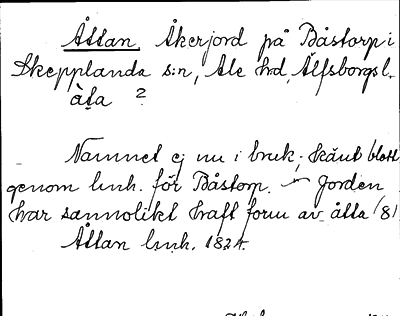 Åttan Åkerjord på Båstorp i
Skepplanda s:n, Ale hd, Älfsborgs l.
àt̜a ?
Namnet ej nu i bruk; känt blott
genom lmk. för Båstorp. – Jorden
har sannolikt haft form av åtta (8)
Åttan lmk. 1824.